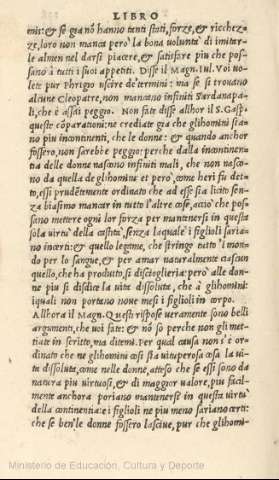 LIBRO
mis: & se gia nõ hanno tenti stati, forze, & ricchez-
ze, loro non manca però la bona uoluntà di imitar-
le almen nel darsi piacere, & satisfare piu che pos-
sano à tutti i suoi appetiti. Disse il Magn. Iul. Voi uo-
lete pur Phrigio uscire de'termini: ma se si trouano
alcune Cleopatre, non mancano infiniti Sardanapa-
li, che è assai peggio. Non fate disse allhor il S. Gasp.
queste cõparationi: ne crediate gia che glihomini sia-
no piu incontinenti, che le donne: & quando anchor
fossero, non sarebbe peggio: perche dalla incontinen-
tia delle donne nascono infiniti mali, che non nasco-
no da quella de glihomini: et però, come heri fu det-
to, essi prudẽtemente ordinato che ad esse sia licito sen-
za biasimo mancar in tutto l'altre cose, acciò che pos-
sano mettere ogni lor forza per mantenersi in questa
sola uirtù della castità, senza laquale i figlioli saria-
no incerti: & quello legame, che stringe tutto'l mon-
do per lo sangue, & per amar naturalmente ciascun
quello, che ha produtto, si disciogliería: però alle don-
ne piu si disdice la uita dissoluta, che à glihomini:
iquali non portano noue mesi i figlioli in corpo.
Allhora il Magn. Questi rispose ueramente sono belli
argumenti, che uoi fate: & nõ so perche non gli met-
tiate in scritto, ma ditemi. Per qual causa non s'è or-
dinato che ne glihomini cosi sia uituperosa cosa la ui-
ta dissoluta, come nelle donne, atteso che se essi sono da
natura piu uirtuosi, & di maggior ualore, piu facil-
mente anchora poriano mantenersi in questa uirtù
della continentia: e i figlioli ne piu ne meno sariano certi:
che se ben le donne fossero lasciue, pur che glihomi-
Ministerio de Educación, Cultura y Deporte